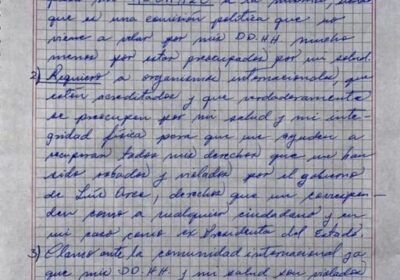 que es una comisión política que no
viene a velar por mis DD.HH. mucho
menos por estar preocupados por mi salud.
2) Requiero a organismos internacionales, que
estén acreditados y que verdaderamente
se preocupen por mi salud y mi inte-
gridad física para que me ayuden a
recuperar todos mis derechos que me han
sido robados y violados por el gobierno
de Luis Arce, derechos que me correspon-
den como a cualquier ciudadano y en
mi caso como ex Presidenta del Estado.
3) Clamo ante la comunidad internacional ya
que mis DD.HH. y mi salud son violados